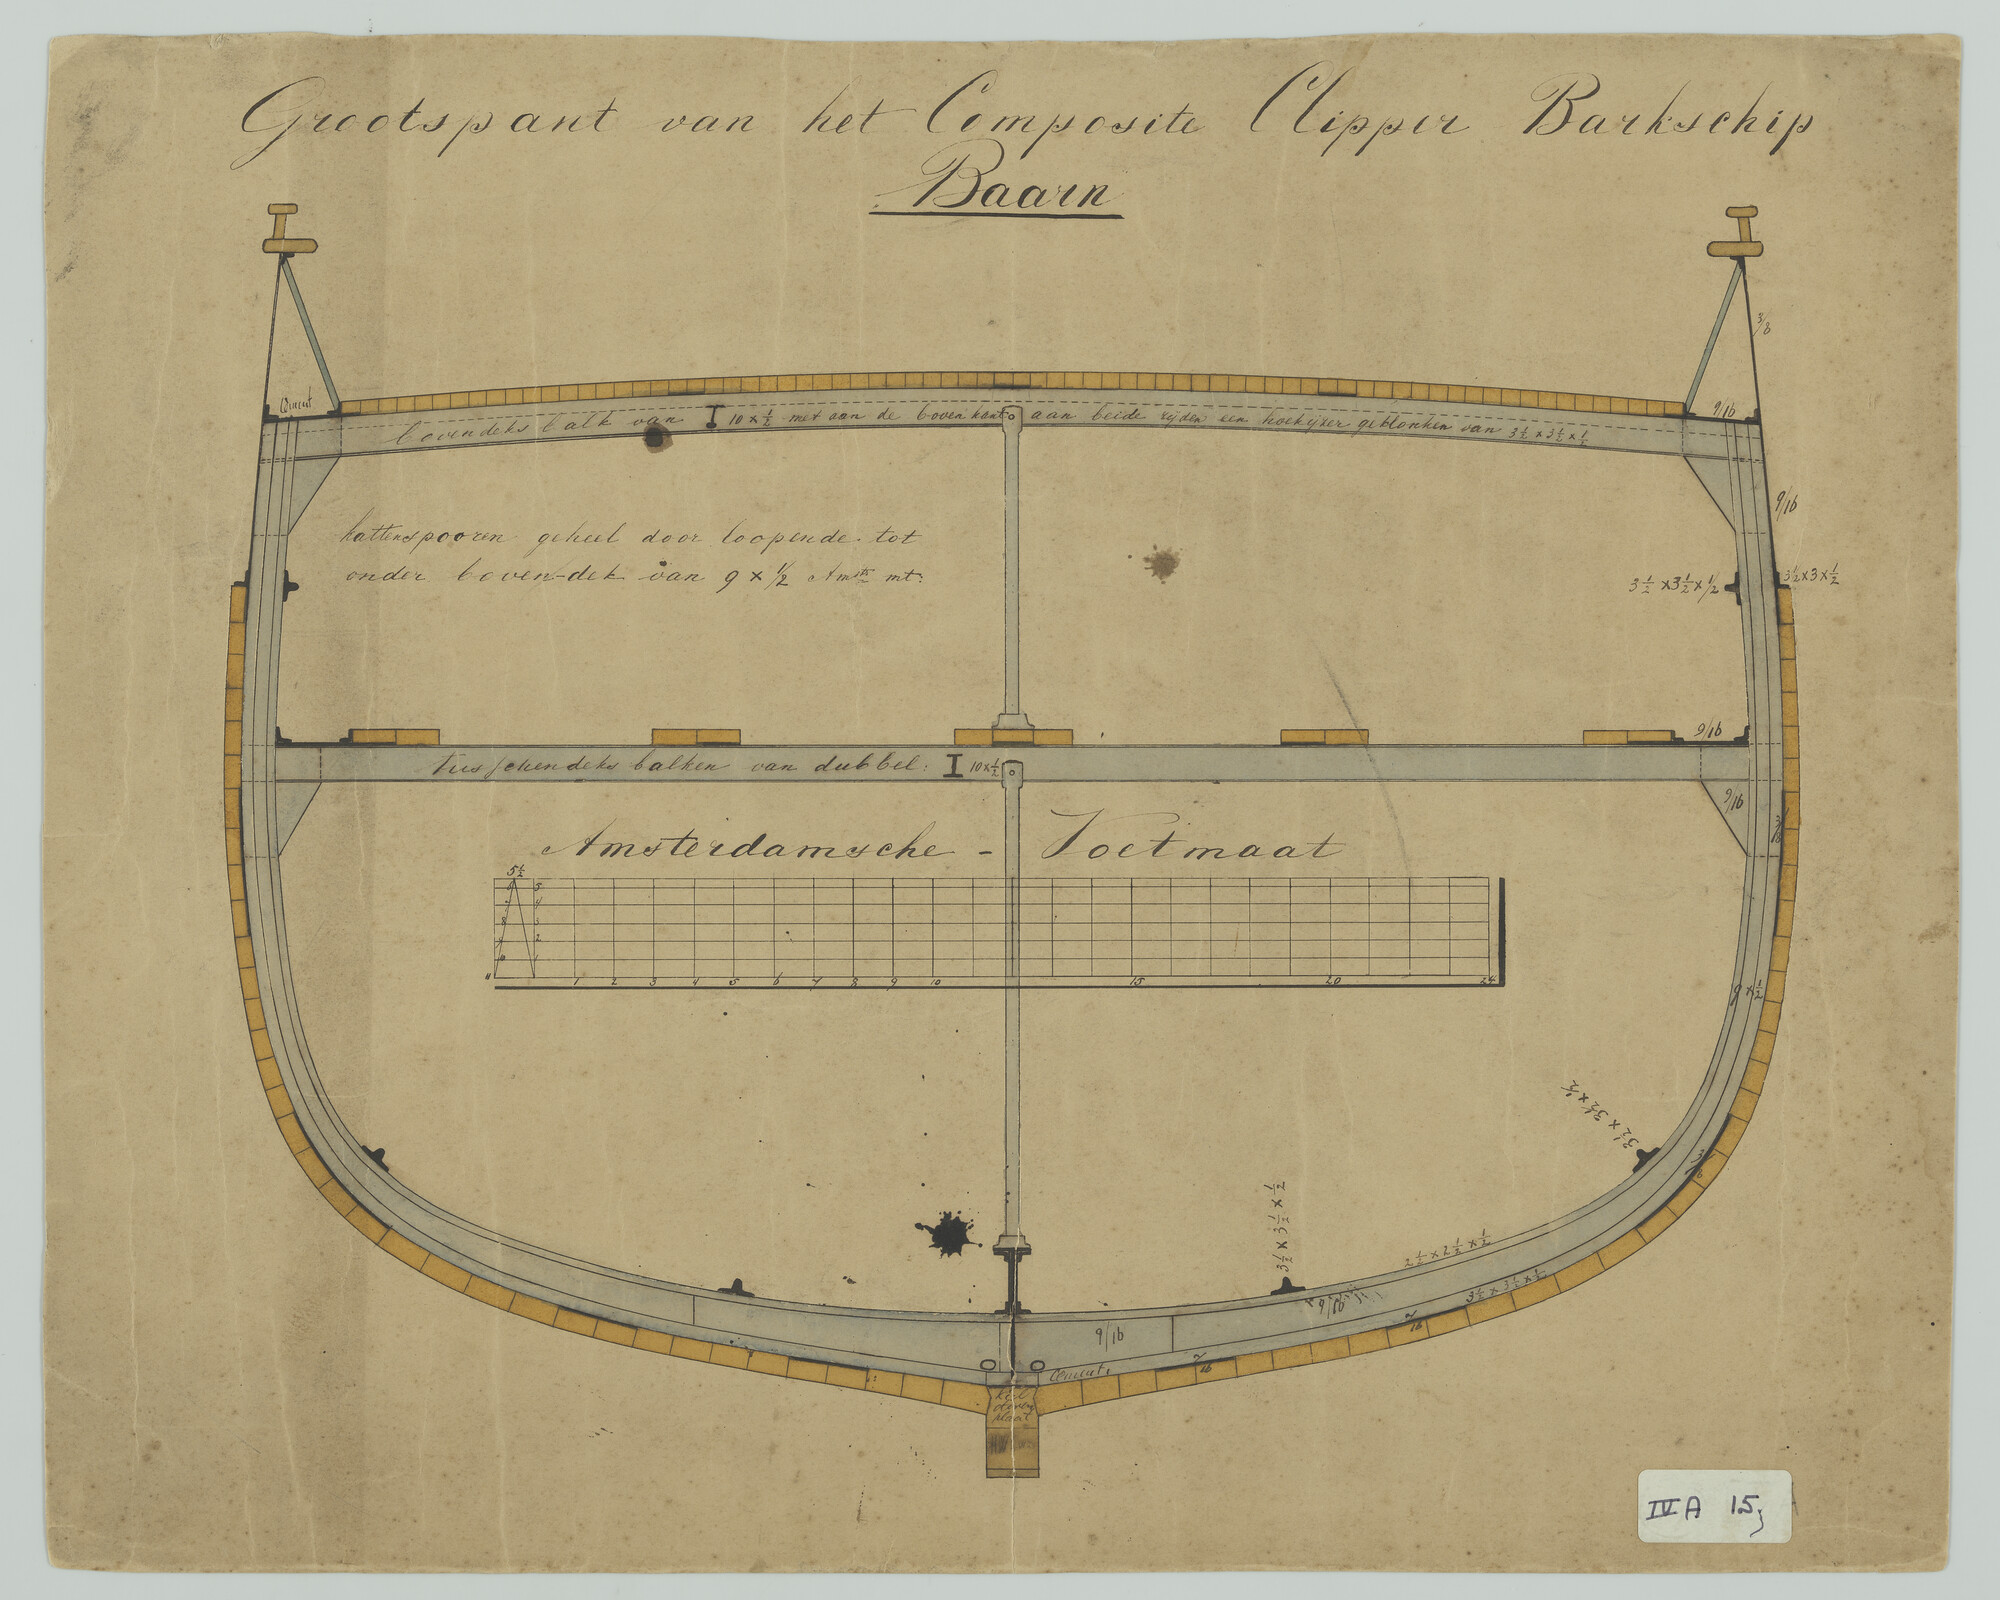 Grootspant van het Composite Clipper Barkschip
Baarn
3/8
Cement
9/16
bovendeks balk van I 10 x ½ met aan de bovenkant aan beide zijden een hoekijzer geklonken van 3½ x 3½ x ½
9/16
kattenspooren geheel door loopende tot
onder boven-dek van 9 x ½ Amst: mt:
3½ x 3½ x ½
3½ x 3 x ½
9/16
tusschendeks balken van dubbel: I 10 x ½
9/16
Amsterdamsche - Voetmaat
5½
5
4
3
2
1
11 1 2 3 4 5 6 7 8 9 10 15 20 24
9 x ½
3½ x 3½ x ½
3½ x 3½ x ½
2½ x 2½ x ½
3½ x 3½ x ½
9/16
7/16
9/16
7/16
Cement
Kiel
plaat
IV A 15j